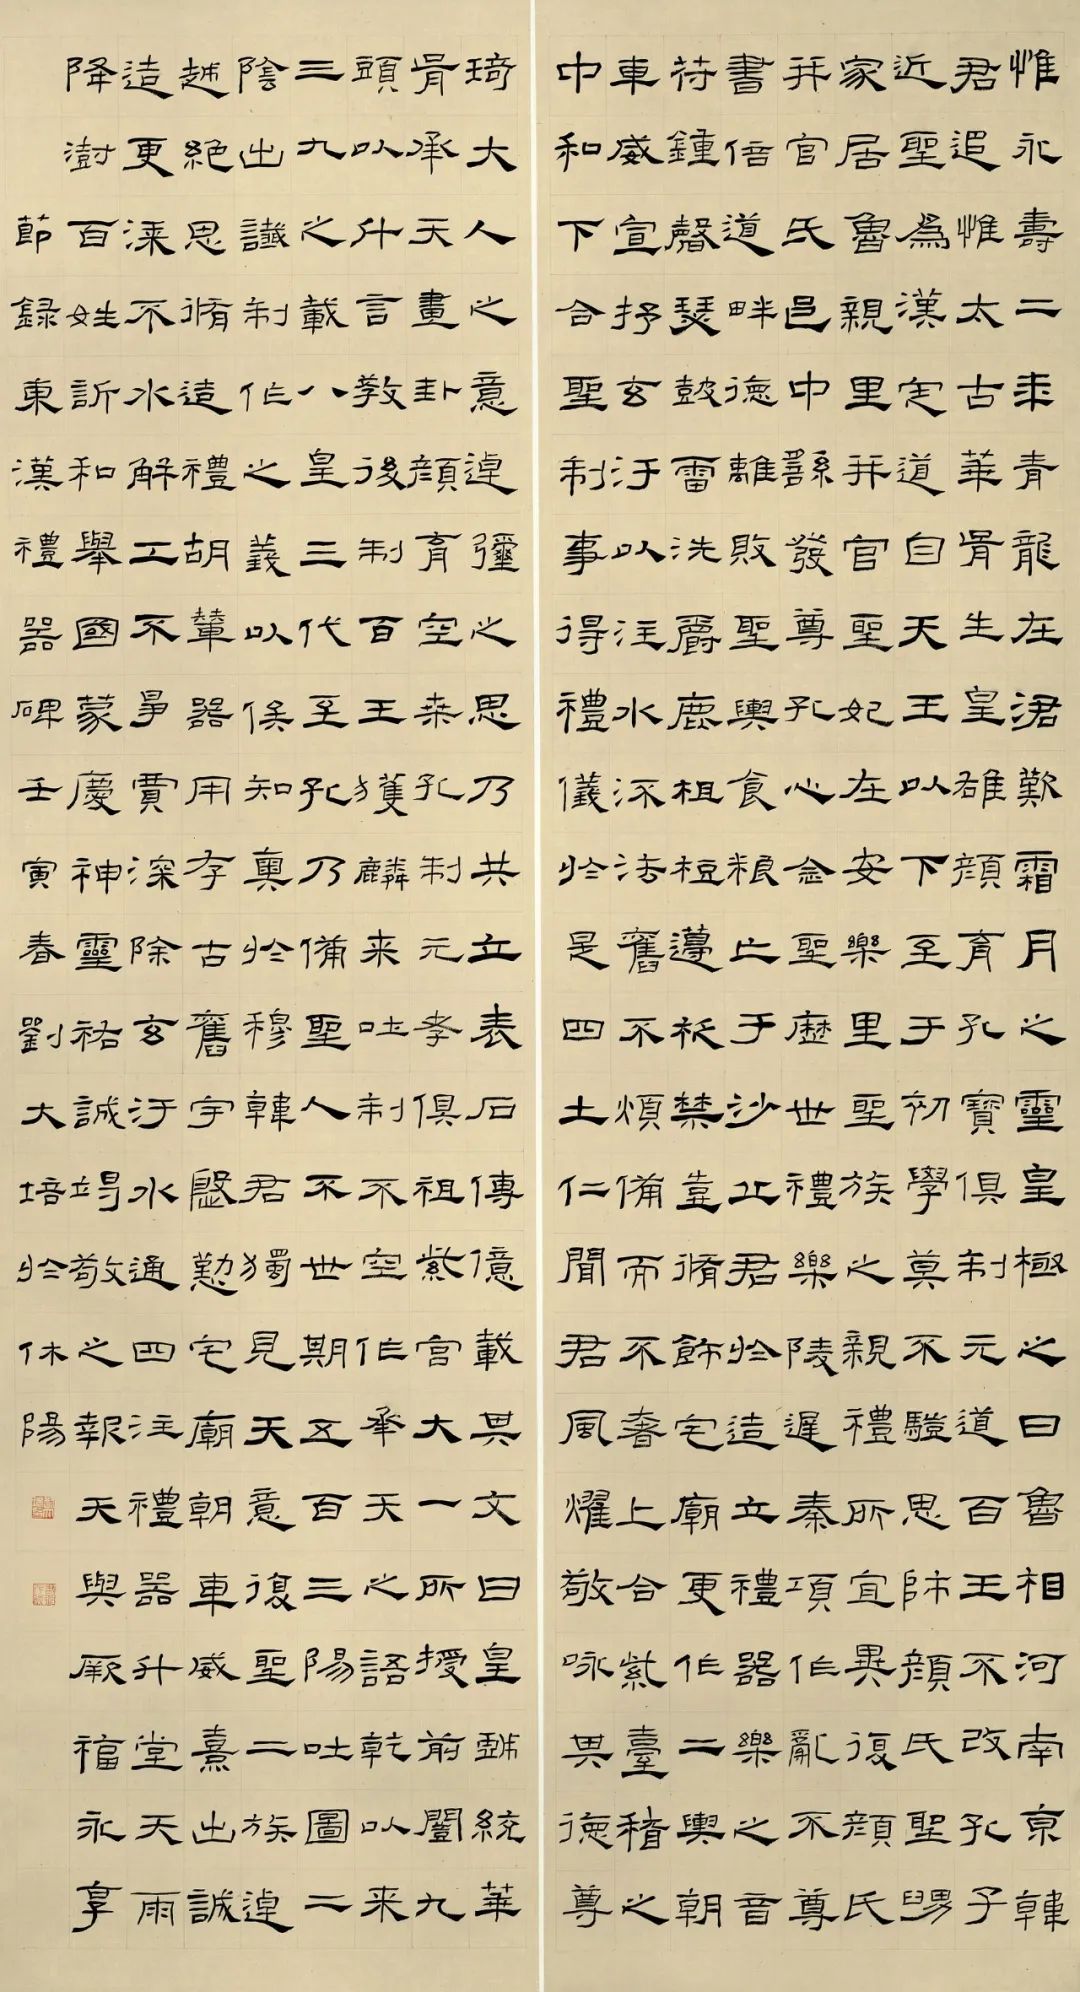 惟永壽二年青龍在涒歎霜月之靈皇極之日魯相河南京韓
君追惟太古華胥生皇雄顏育孔寶俱制元道百王不改孔子
近聖爲漢定道自天王以下至于初學莫不驥思師顏氏聖舅
家居魯親里并官聖妃在安樂里聖族之親禮所宜異復顏氏
并官氏邑中繇發尊孔心念聖歷世禮樂陵遲秦項作亂不尊
書倍道畔德離敗聖輿食粮亡于沙丘君於造立禮器樂之音
符鍾磬瑟鼓雷洗爵鹿柤梪籩柉禁壺脩飾宅廟更作二輿朝
車威宣抒玄汙以注水流法舊不煩備而不奢上合紫臺稽之
中和下合聖制事得禮儀於是四土仁聞君風燿敬咏其德尊
琦大人之意逴彌之思乃共立表石傳億載其文曰皇戲統華
胥承天畫卦顏育空桑孔制元孝俱祖紫宮大一所授前闓九
頭以什言教後制百王獲麟来吐制不空作承天之語乾以来
三九之載八皇三代至孔乃備聖人不世期五百三陽吐圖二
陰出讖制作之義以俟知奧於穆韓君獨見天意復聖二族逴
越絕思脩造禮胡輦器用存古舊宇殷懃宅廟朝車威熹出誠
造更漆不水解工不爭賈深除玄汙水通四注禮器升堂天雨
降澍百姓訢和舉國蒙慶神靈祐誠竭敬之報天與厥福永享
節録東漢禮器碑壬寅春劉大培於休陽